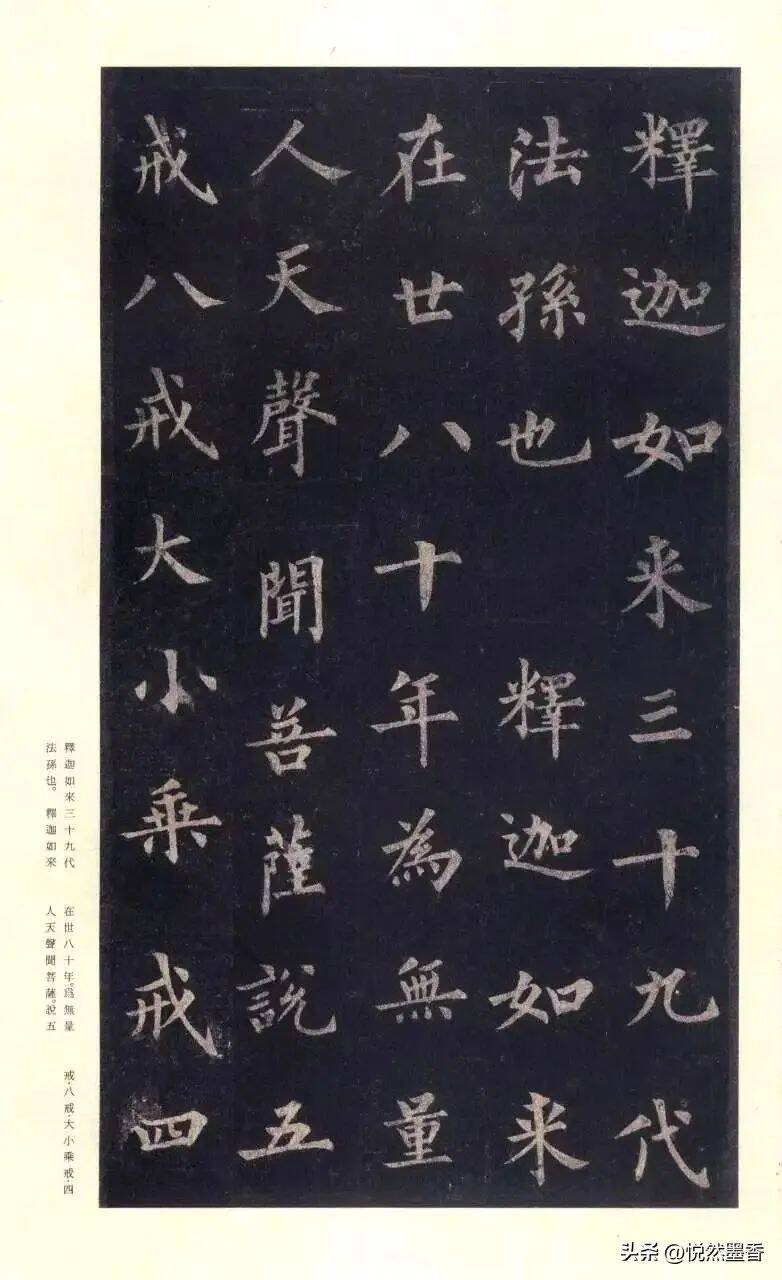 釋迦如来三十九代
法孫也 釋迦如来
在世八十年為無量
人天聲聞菩薩說五
戒八戒大小乘戒四
釋迦如來三十九代
法孫也。 釋迦如來
在世八十年。爲無量
人天聲聞菩薩。說五
戒·八戒·大小乘戒·四
头条 @悦然墨香